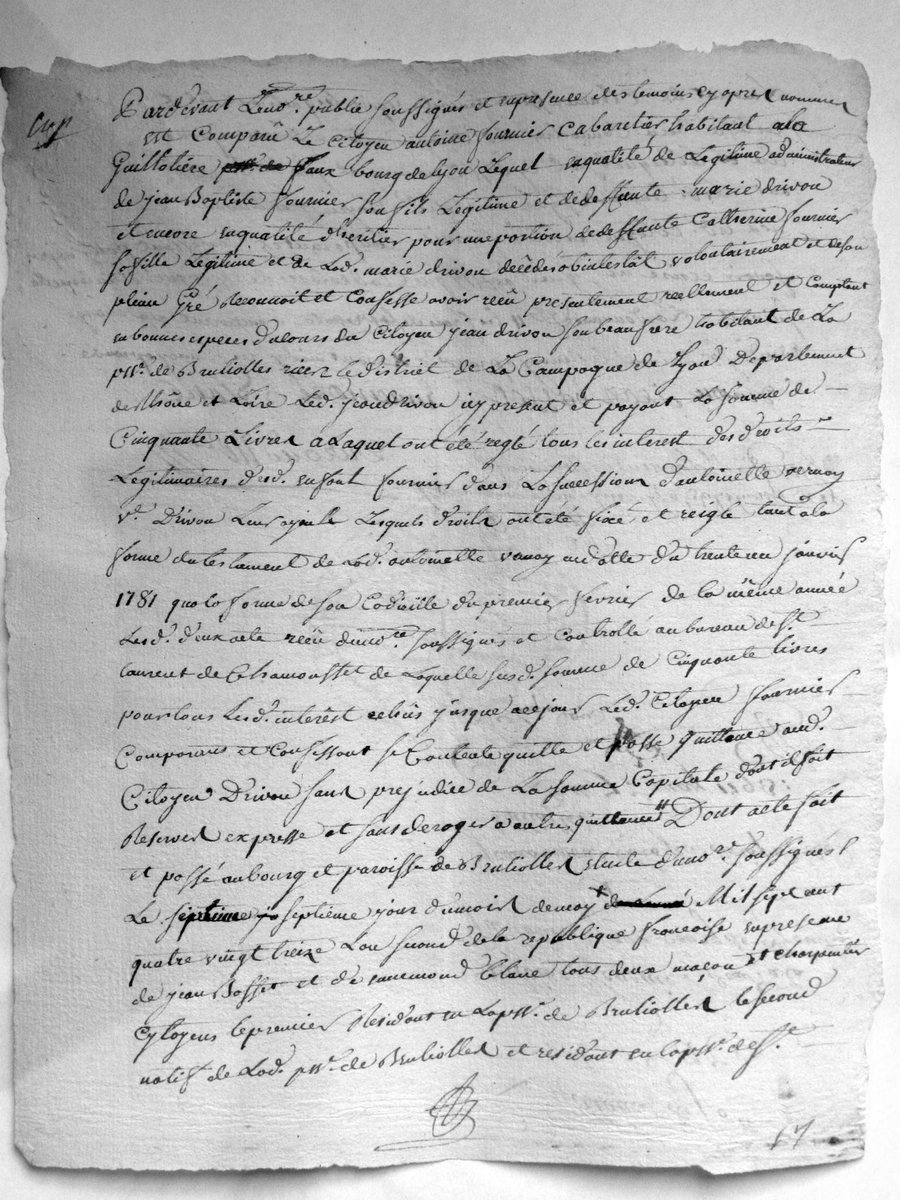 Pardevant Le no.re public soussigné et en presence des temoins cy apres nommés
est Comparû Le Citoyen antoine fournier Cabaretier habitant a la
Guillotiere faux bourg de Lyon Lequel en qualité de Legitime administrateur
de jean Baptiste fournier son fils Legitime et de deffunte marie drivon
et encore en qualité d'heritier pour une portion de deffunte Catherine fournier
sa fille Legitime et de Lad. marie drivon decédés abintestat volontairement et de son
plein Gré Reconnoit et Confesse avoir reçû presentement réellement et Comptant
en bonnes especes du cours du Citoyen jean drivon son beau frere habitant de La
pss.e de Brulioles rierre le district de La Campagne de Lyon Departement
de Rhône et Loire Led. jean drivon icy present et payant La somme de
Cinquante Livres a Laquel ont été reglé tous les interest des droits
Legitimaires desd. enfant fournier dans La succession d'antoinette vernay
v.e Drivon Leur ayeule Lesquels droits ont été fixé et reiglé tant a la
forme du testament de Lad. antoinette vernay en datte du trente un janvier
1781 qu'a la forme de son Codicille du premier fevrier de la même année
Lesd. deux acte reçû du no.re soussigné et controllé au bureau de S.t
Laurent de Chamousset de Laquelle susd. somme de Cinquante Livres
pour tous Lesd. interest echus jusque a ce jour Led. Citoyen fournier
Comparant et Confessant se Contente quitte et passe quittance aud.
Citoyen Drivon sans prejudice de La somme Capitale dont il fait
Reserves expresse et sans deroger a autres quittances Dont acte fait
et passé au bourg et paroisse de Brulioles etude du no.re soussigné
Le septieme jour du mois de may Mil sept cent
quatre vingt treize L'an second de la republique francoise en presence
de jean Basset et de Blanc tous deux maçon et charpentier
Cytoyens le premier Residant en La pss.e de Brulioles le second
natif de Lad. pss.e de Brulioles et residant en la pss.e de S.t